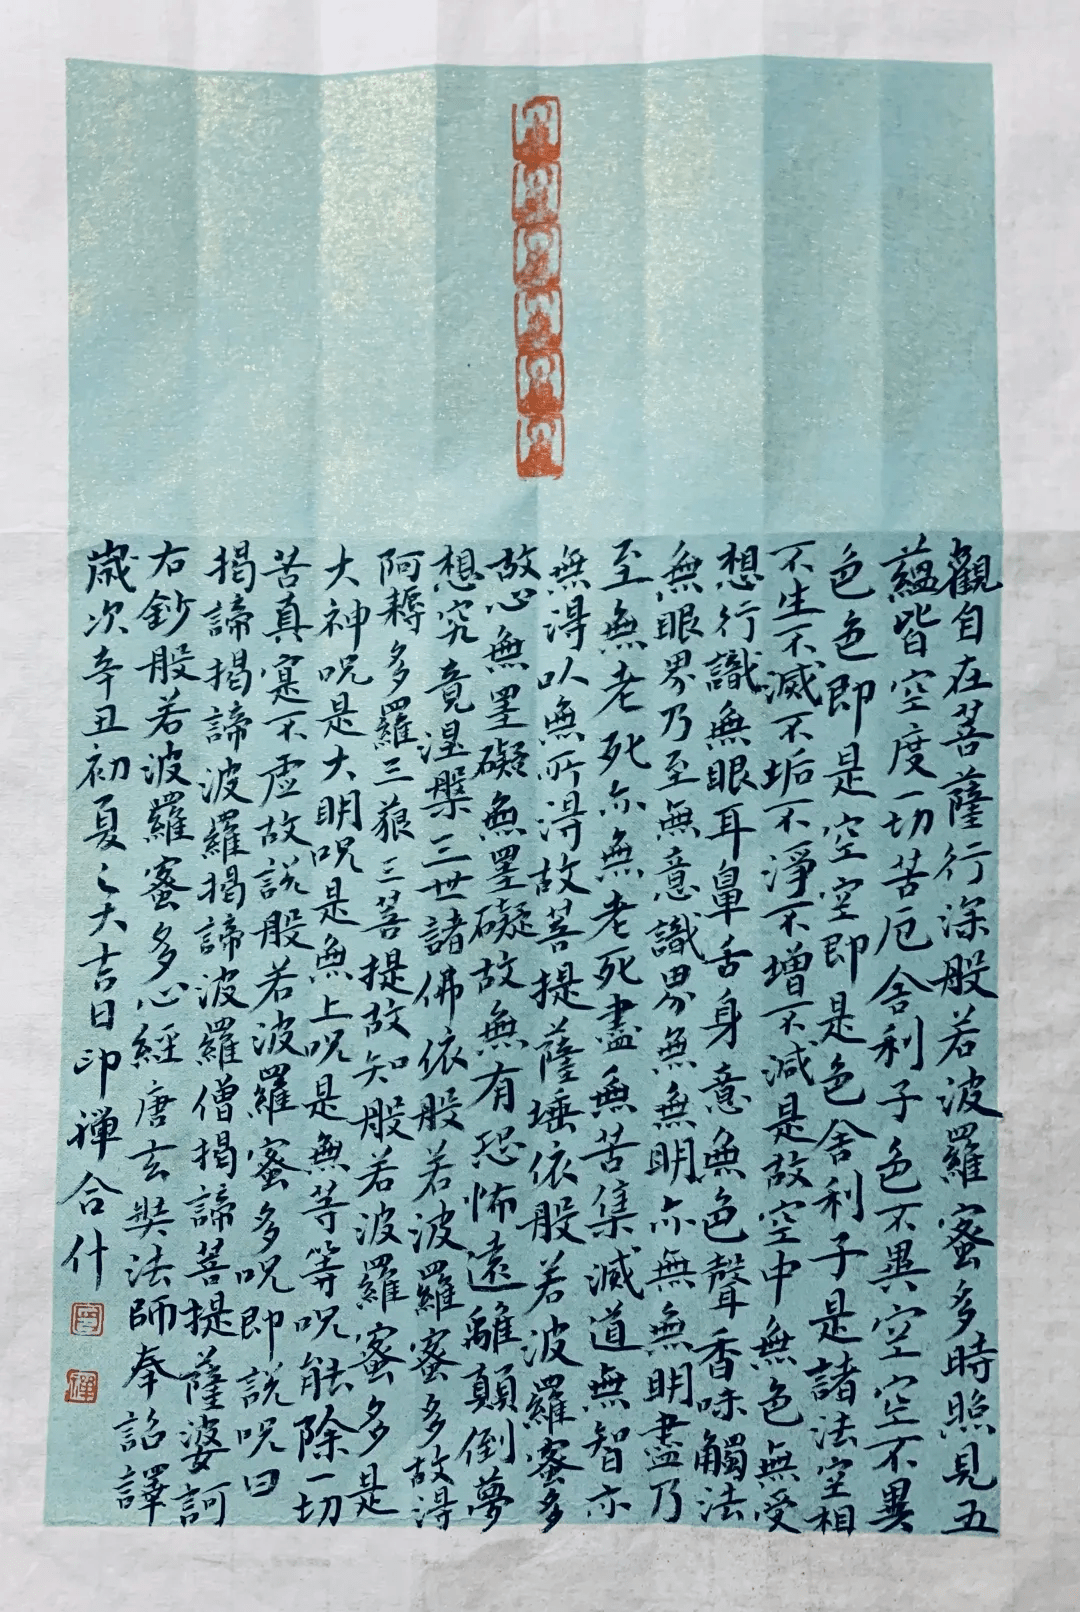 觀自在菩薩行深般若波羅蜜多時照見五
蘊皆空度一切苦厄舍利子色不異空空不異
色色即是空空即是色舍利子是諸法空相
不生不滅不垢不淨不增不減是故空中無色無受
想行識無眼耳鼻舌身意無色聲香味觸法
無眼界乃至無意識界無無明亦無無明盡乃
至無老死亦無老死盡無苦集滅道無智亦
無得以無所得故菩提薩埵依般若波羅蜜多
故心無罣礙無罣礙故無有恐怖遠離顛倒夢
想究竟涅槃三世諸佛依般若波羅蜜多故得
阿耨多羅三藐三菩提故知般若波羅蜜多是
大神呪是大明呪是無上呪是無等等呪能除一切
苦真寔不虛故說般若波羅蜜多呪即說呪曰
揭諦揭諦波羅揭諦波羅僧揭諦菩提薩婆訶
右鈔般若波羅蜜多心經唐玄奘法師奉詔譯
歲次辛丑初夏之大吉日印禪合什